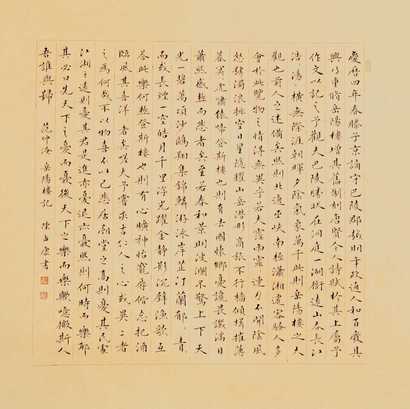 慶曆四年春滕子京謫守巴陵郡越明年政通人和百廢具
興乃重脩岳陽樓增其舊制刻唐賢今人詩賦於其上屬予
作文以記之予觀夫巴陵勝狀在洞庭一湖銜遠山吞長江
浩浩湯湯橫無際涯朝暉夕陰氣象萬千此則岳陽樓之大
觀也前人之述備矣然則北通巫峽南極瀟湘遷客騷人多
會於此覽物之情得無異乎若夫霪雨霏霏連月不開陰風
怒號濁浪排空日星隱耀山岳潛形商旅不行檣傾楫摧薄
暮冥冥虎嘯猿啼登斯樓也則有去國懷鄉憂讒畏譏滿目
蕭然感極而悲者矣至若春和景明波瀾不驚上下天
光一碧萬頃沙鷗翔集錦鱗游泳岸芷汀蘭郁郁青青
而或長煙一空皓月千里浮光耀金靜影沉璧漁歌互
答此樂何極登斯樓也則有心曠神怡寵辱偕忘把酒
臨風其喜洋洋者矣嗟夫予嘗求古仁人之心或異二者
之為何哉不以物喜不以己悲居廟堂之高則憂其民處
江湖之遠則憂其君是進亦憂退亦憂然則何時而樂耶
其必曰先天下之憂而憂後天下之樂而樂歟噫微斯人
吾誰與歸 范仲淹岳陽樓記 陳康書